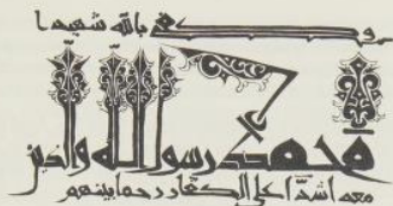 وكفى بالله شهيدا
محمد رسول الله والذين
معه اشداء على الكفار رحما بينهم